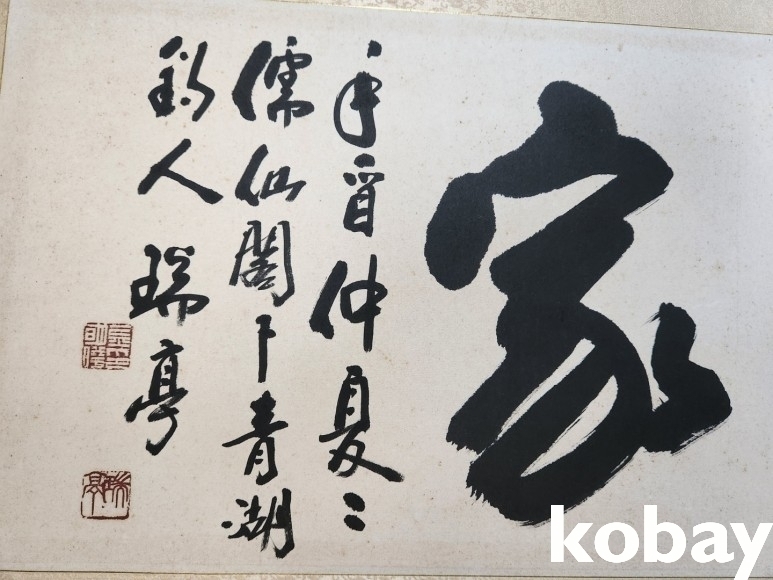 家
辛酉仲夏
儒仙閣下青湖
釣人 瑞亭
kobay